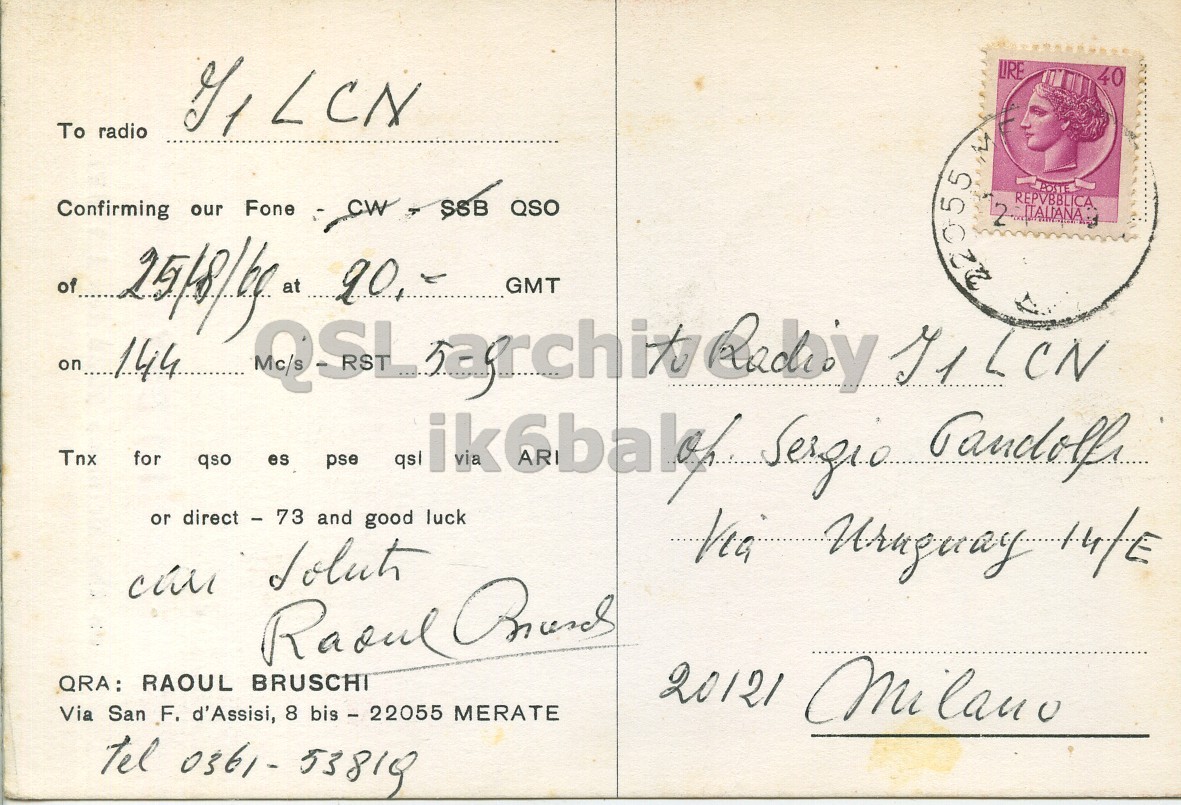 To radio I1 LCN
Confirming our Fone - CW - SSB QSO
of 25/8/69 at 20,- GMT
on 144 Mc/s - RST 5-9
Tnx for qso es pse qsl via ARI
or direct - 73 and good luck
cari saluti
Raoul Bruschi
QRA: RAOUL BRUSCHI
Via San F. d'Assisi, 8 bis - 22055 MERATE
tel 0361-53819
LIRE 40
POSTE
REPVBBLICA
ITALIANA
22055 ME
to Radio I1 LCN
op. Sergio Pandolfi
Via Uruguay 14/E
20121 Milano
QSL archive by
ik6bak